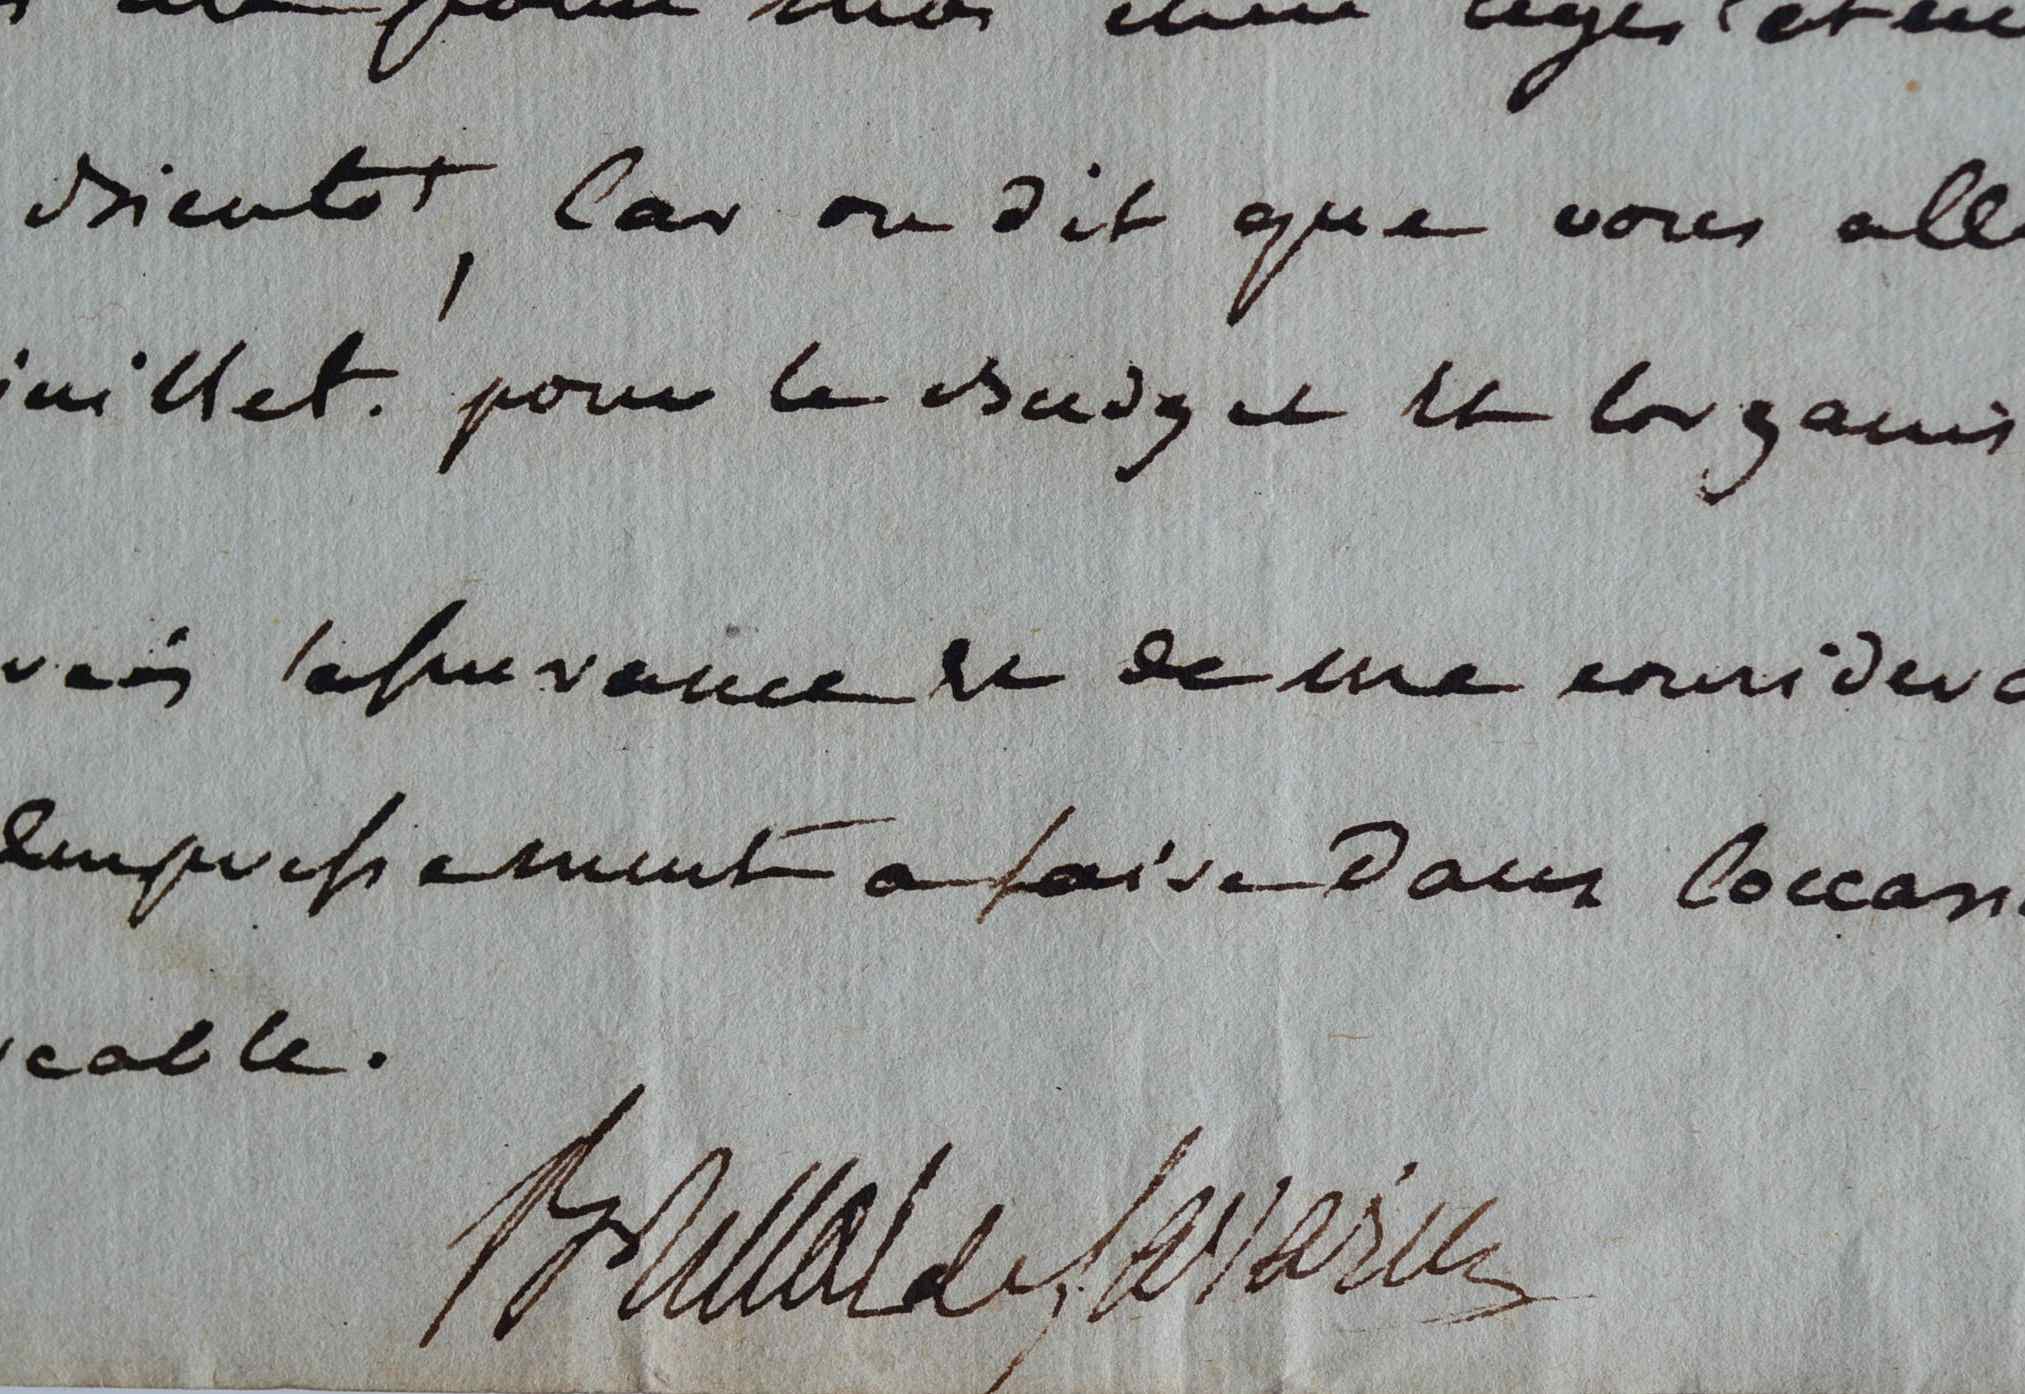 pour nos
Bientôt, Car on dit que vous alle
juillet. pour le Budget Et lorganis
lassurance Et de ma considera
Empressement a faire Dans loccasi
cable.